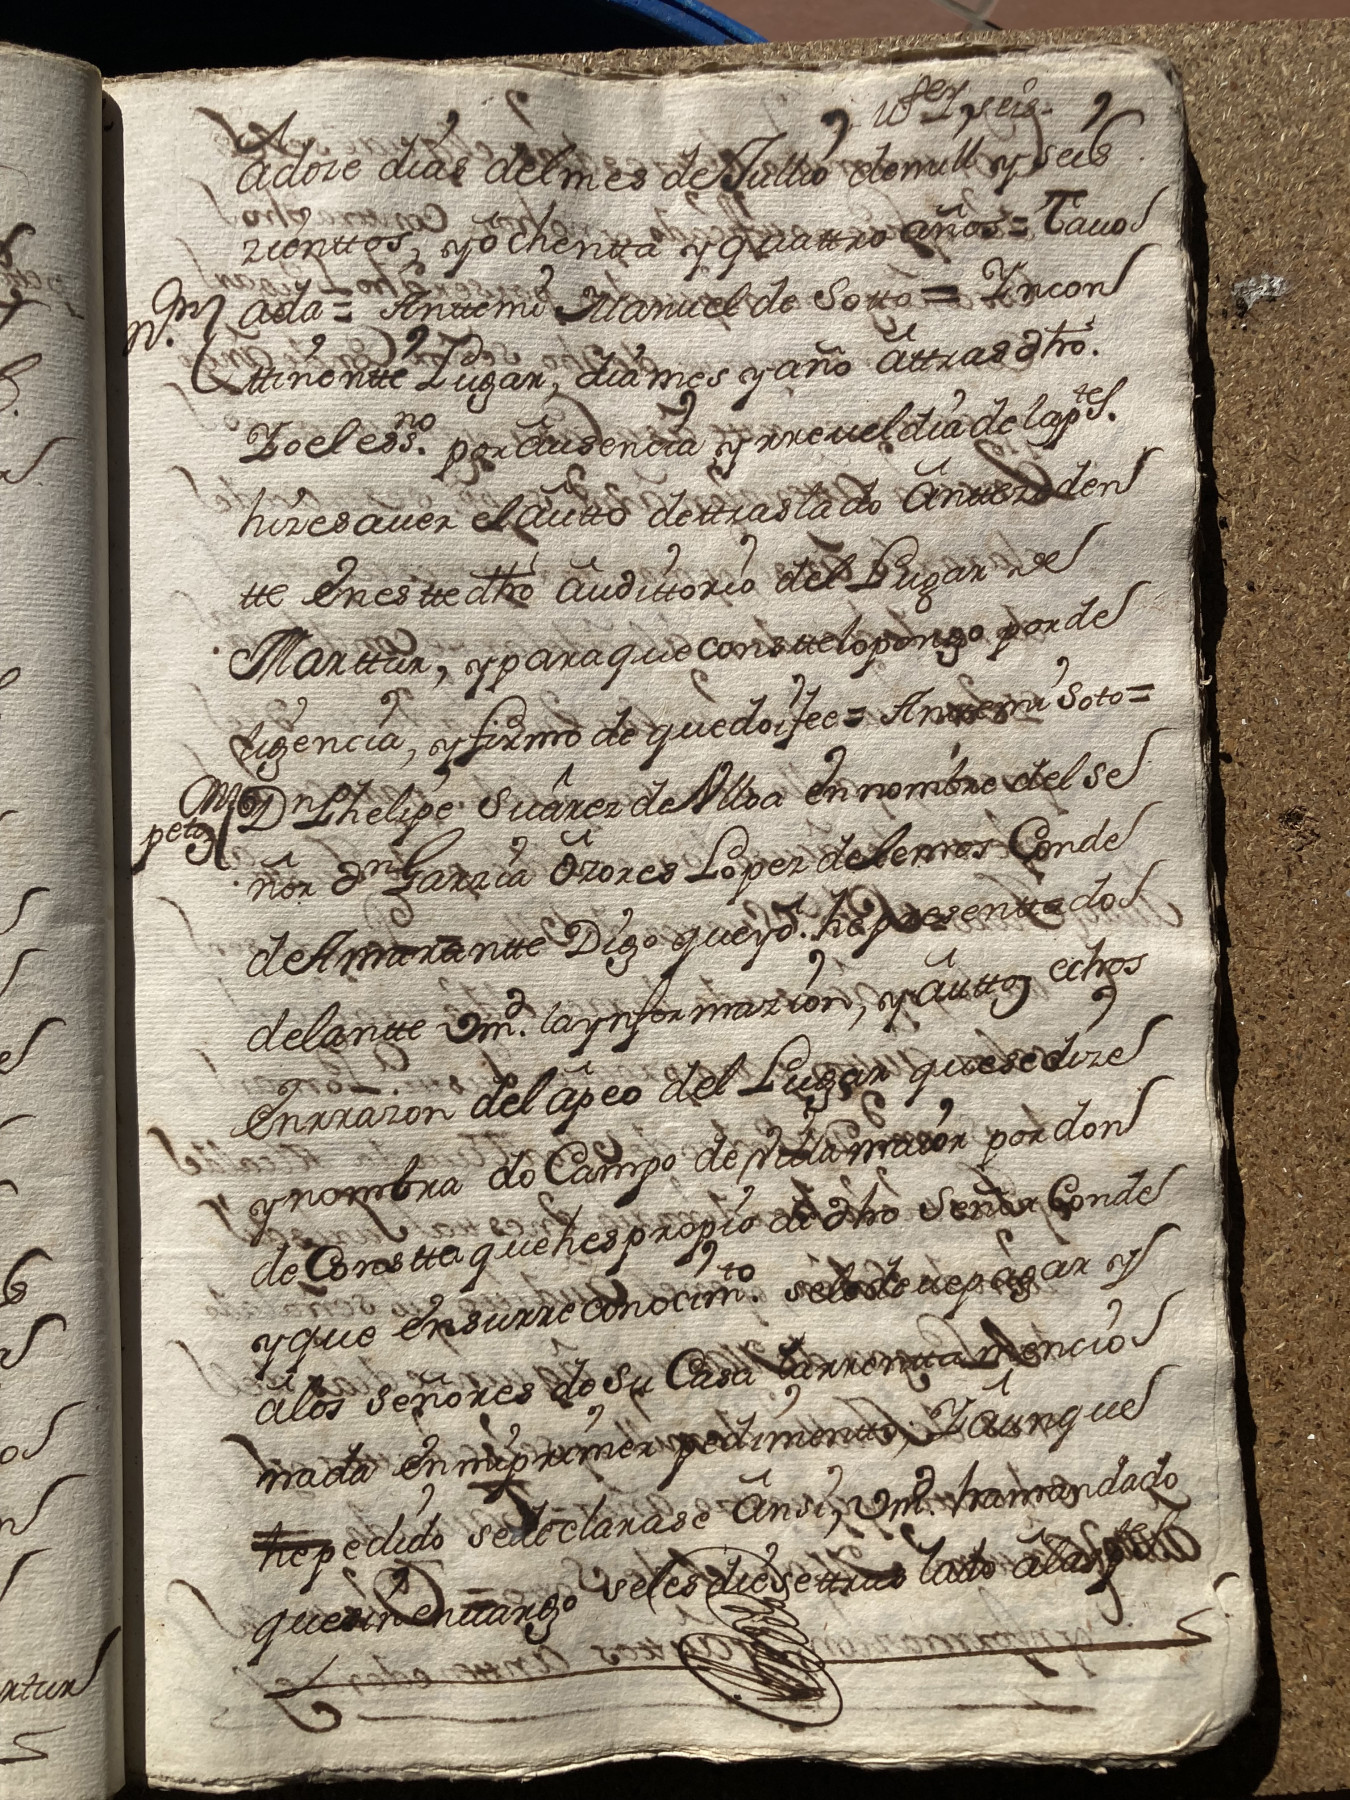 y seis
adoze dias del mes de Jullio de mill y seis
zienttos, y ochentta y quattro años = Tavo
ada = Anttemi Manuel de Sotto = Yncon
n.
ttinentte Lugar, dia mes y año attras dho.
Yo el essno. por ausencia y rreveldia de las ptes.
hize saver el autto de ttraslado antezeden
tte en estte dho audittorio del Lugar de
Marttur, y para que constte lo pongo por de
ligencia, y firmo de que doi fee = Anttemi Soto =
petn
Dn Phelipe Suarez de Ulloa en nombre del se
ñor dn Garzia Ozores Lopez de Lemos Conde
de Amarantte Digo que yo he presenttado
delantte Vmd. la ynformazion, y auttos echos
en rrazon del apeo del Lugar que se dize
y nombra do Campo de Villamaior por don
de Corestta que hes propio de dho señor Conde
y que en su rreconocimto. se le deve pagar y
a los señores de su Casa la rrentta mencio
nada en mi primer pedimentto, Y aunque
he pedido se declarase ansi, Vmd. ha mandado
que sin envargo se les diese ttraslatto a las ptes